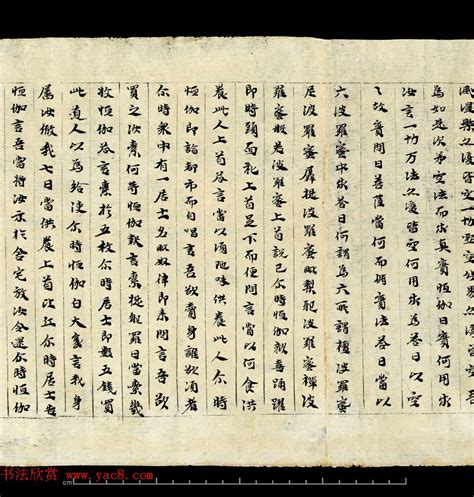 為如是次第空法而求真實恒伽曰實何用求
汝言一切万法皆空何用求為答曰以空
之故實問曰菩薩當何而脩實法答曰當以
六波羅蜜中求答曰何謂為六所謂檀波羅蜜
尼波羅蜜羼提波羅蜜毗梨耶波羅蜜禪波
羅蜜般若波羅蜜上首說已尔時恒伽歡喜踊躍
即時頭面礼上首足下而便問言當以何食供
養此人上首答言當以須陁味供養此人尔時
恒伽即詣都市而自唱言吾欲賣身誰欲須者
尔時衆中有一居士名毗奴律即来問言吾欲
買之汝索何等恒伽報言索羅曰當索幾
枚恒伽答言索於五枚尔時居士即數五錢買
此道人以為給使尔時恒伽白大家言我身
属汝假我七日當供養上首比丘尔時居士告
恒伽言吾當將汝示於舍宅放汝令還尔時恒伽
书法欣赏
www.yac8.com
cm